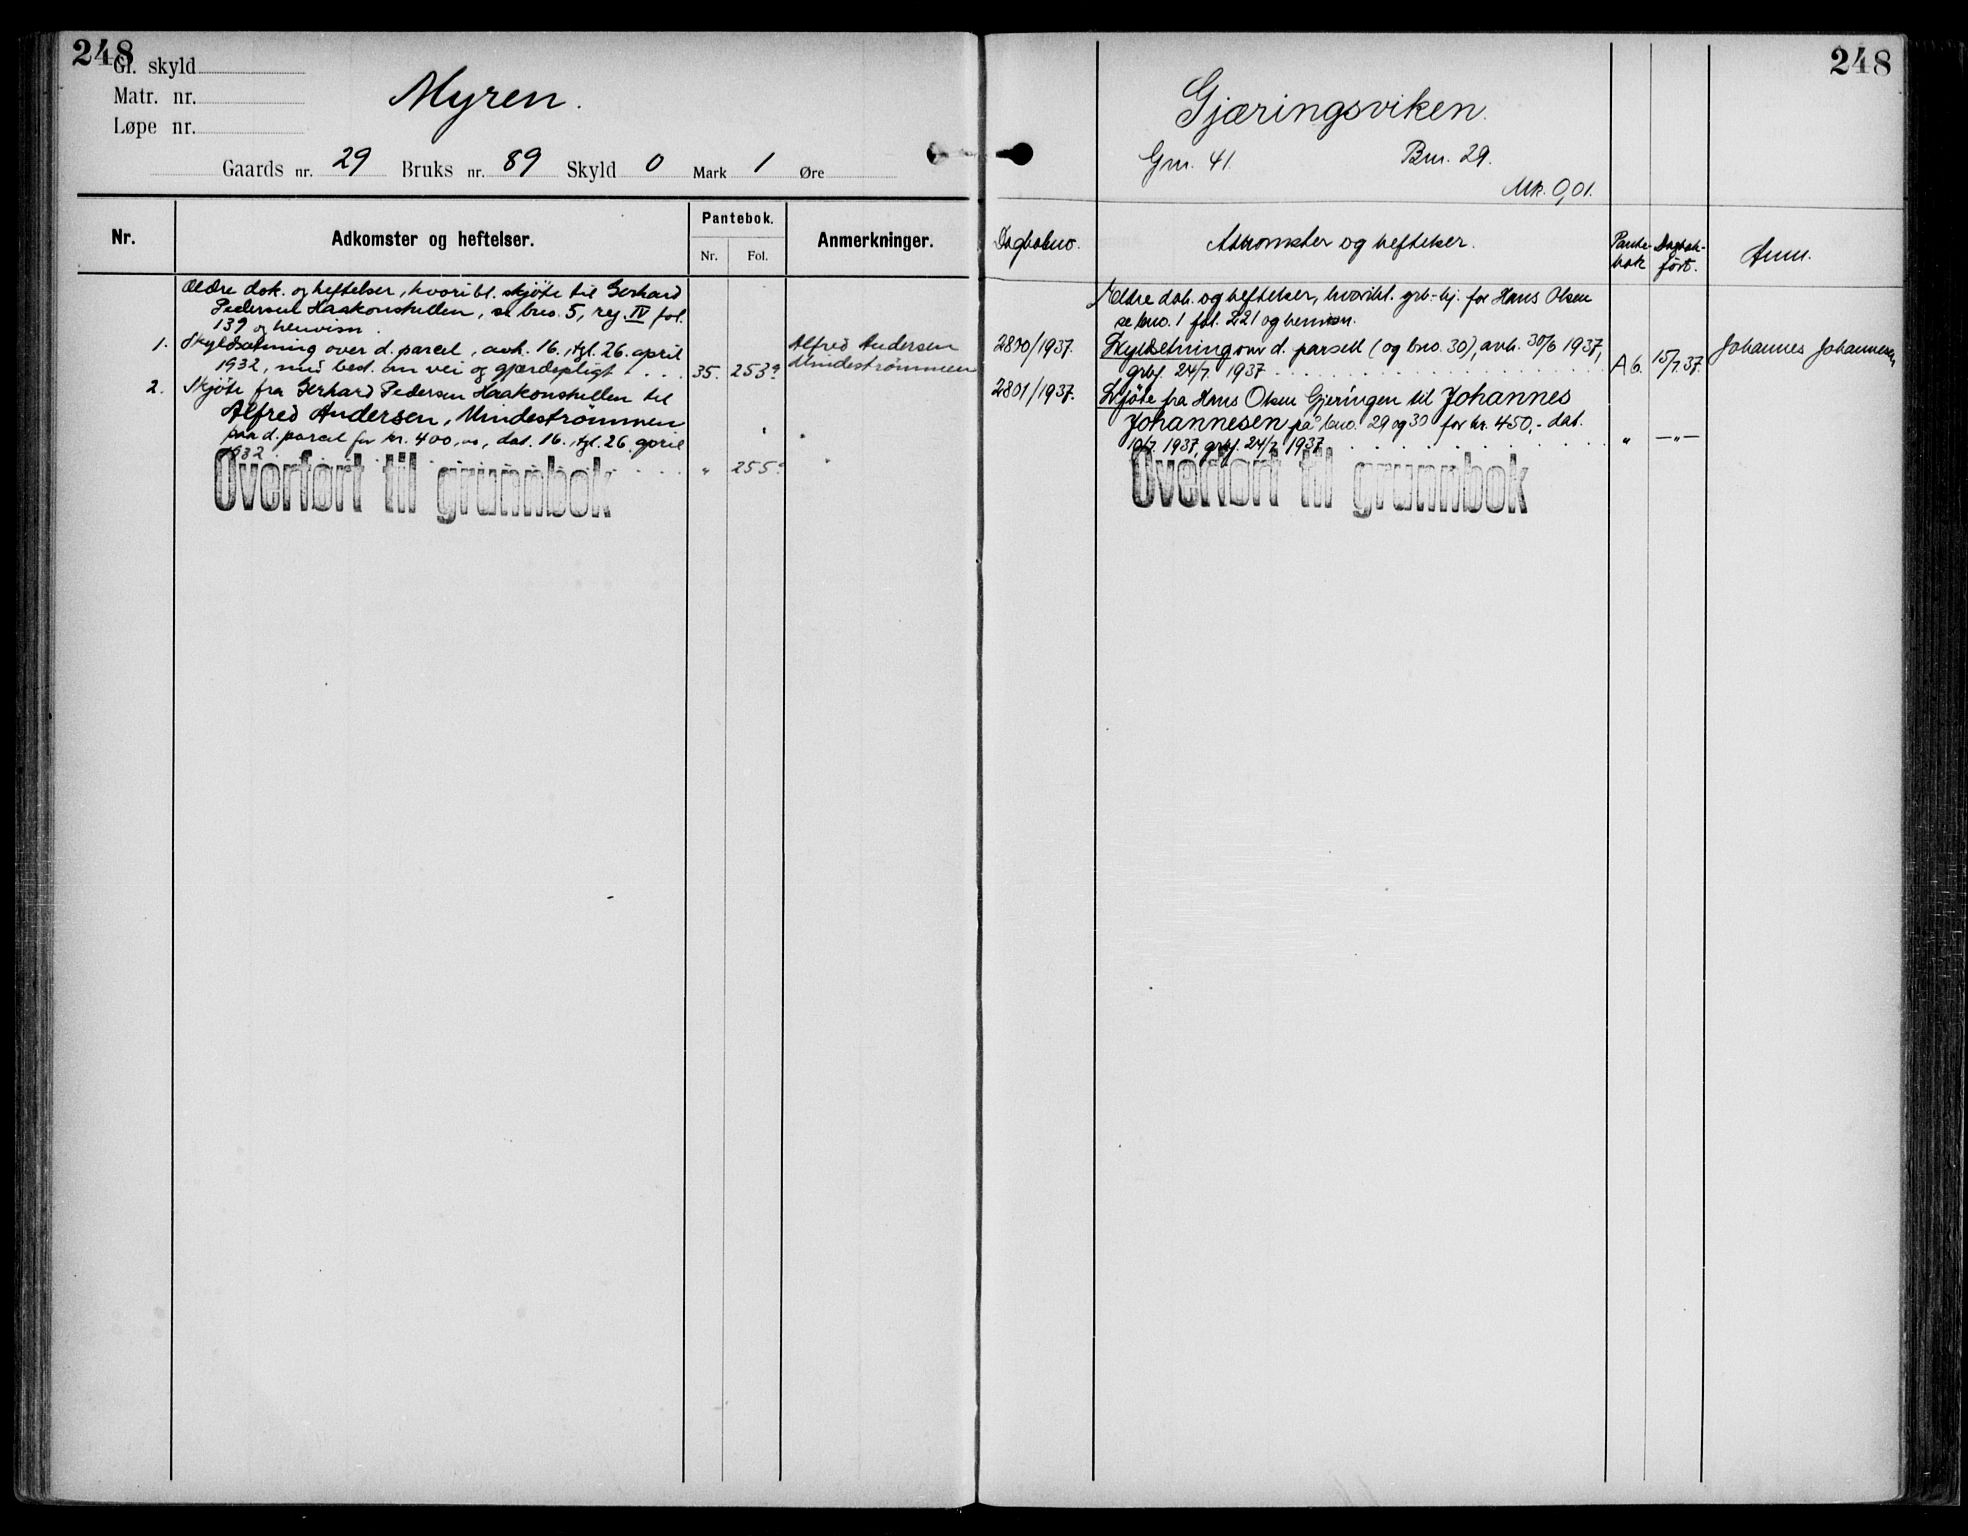 248
Gl. skyld
Matr. nr.
Løpe nr.
Myren.
Gaards nr. 29 Bruks nr. 89 Skyld 0 Mark 1 Øre
Nr. Adkomster og heftelser. Pantebok. Nr. Fol. Anmerkninger.
Ældre dok. og heftelser, hvoribl. skjøte til Gerhard
Pedersen Haakonshellen, se bno. 5, reg. IV fol.
139 og henvisn.
1. Skyldsetning over d. parcel, avh. 16. tgl. 26. april
1932, med best. om vei og gjærdepligt . . . 35. 253
Alfred Andersen
Mindestrømmen
2. Skjøte fra Gerhard Pedersen Haakonshellen til
Alfred Andersen, Mindestrømmen
paa d. parcel for kr. 400,00, dat. 16. tgl. 26. april
1932 . . . „ 255
Overført til grunnbok
248
Gjæringsviken.
Gnr. 41. Bnr. 29.
Mk. 0,01.
Dagbokno. Adkomster og heftelser. Pante-bok Dagbok-ført. Anm.
Ældre dok. og heftelser, hvoribl. grb.-hj. for Hans Olsen
se bno. 1 fol. 221 og henvisn.
2800/1937. Skyldsetning over d. parsell (og bno. 30), avh. 30/6 1937,
grbf. 24/7 1937 . . . A 6. 15/7 37. Johannes Johannesen
2801/1937. Skjøte fra Hans Olsen Gjeringen til Johannes
Johannesen på bno. 29 og 30 for kr. 450,- dat.
10/7 1937, grbf. 24/7 1937 . . . „ —„—
Overført til grunnbok